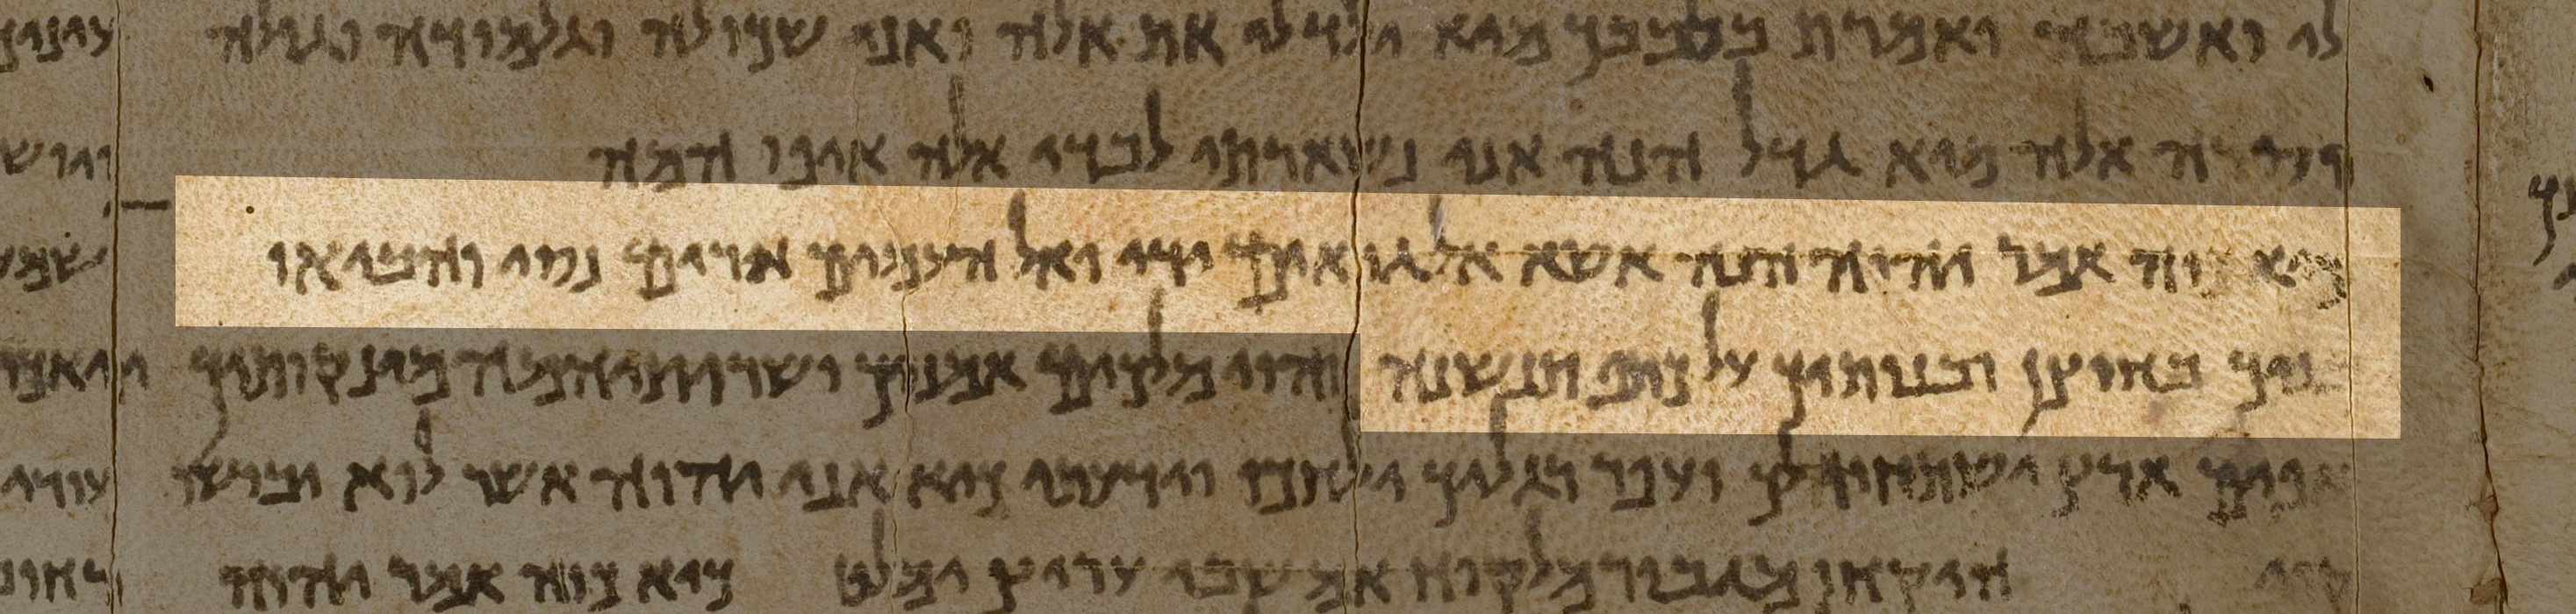 לי ואשבה ואמרת בלבבך מיא ילד לי את אלה ואני שכולה וגלמודה וגולה
וסרה אלה מיא גדל הנה אני נשארתי לבדי אלה איפו המה
כיא כוה אמר יהוה הנה אשא אל גואים ידי ואל העמים ארים נסי והביאו
בניך בחוצן ובנותיך על כתף תנשנה והיו מלכים אמניך ושרותיהמה מינקותיך
אפים ארץ ישתחוו לך ועפר רגליך ילחכו וידעתי כיא אני יהוה אשר לוא יבושו
קוי היקחו מגבור מלקוח אם שבי עריץ ימלט כיא כוה אמר יהוה